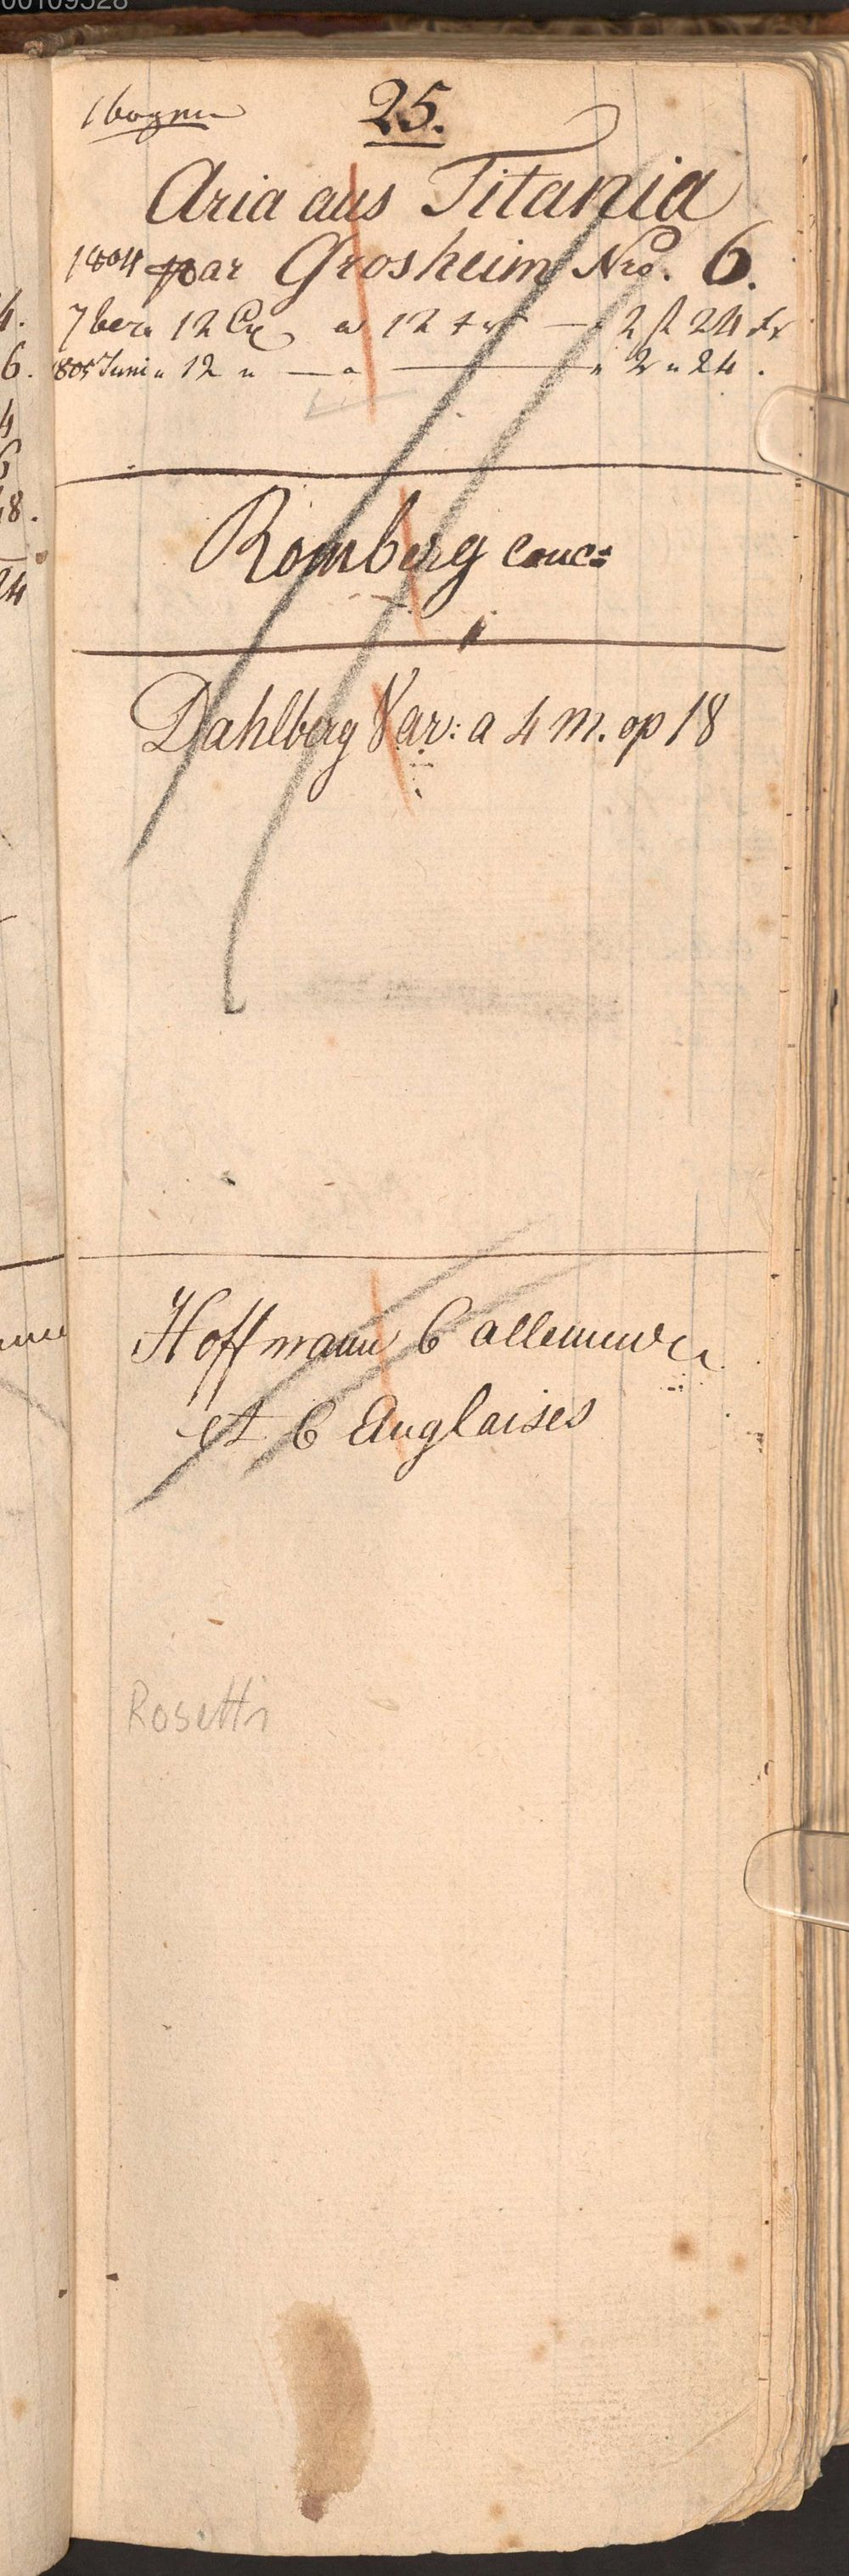 00109528
1 bogen
25.
Aria aus Titania
1804 par Grosheim Nro. 6.
7ber 12 Ex a 12 xr — 2 fl 24 xr
1805 Juni " 12 " — " — " 2 " 24.
Romberg conc:
Dahlberg Var: a 4 m. op 18
Hoffmann 6 allemande
et 6 Anglaises
Rosetti
4.
6.
4
6
48.
24